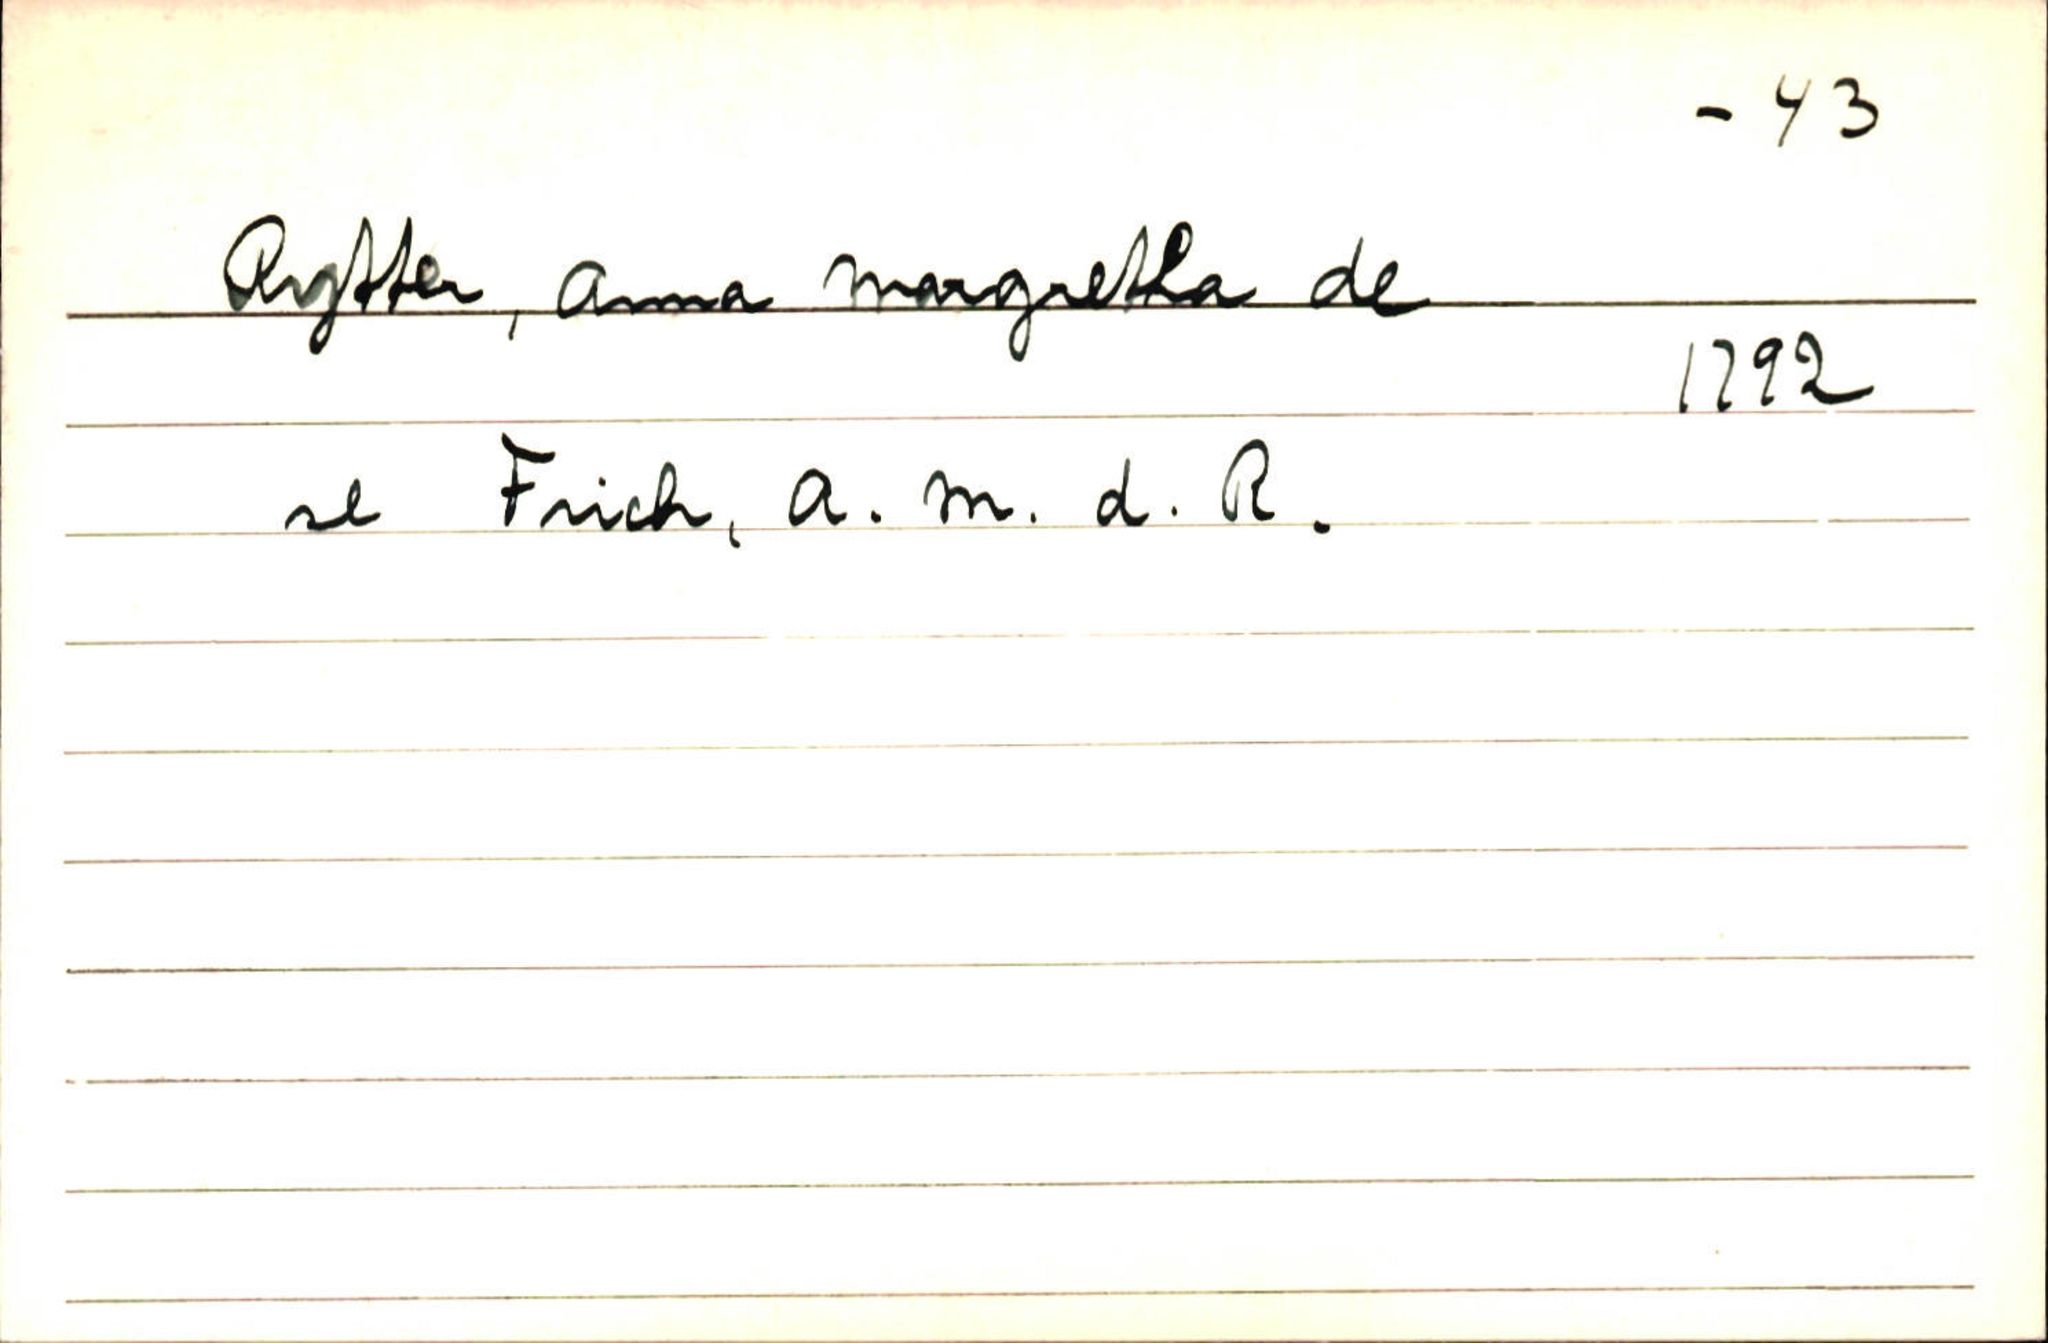 - 43
Rytter, Anna Margretha de
1792
se Frich, A. M. d. R.